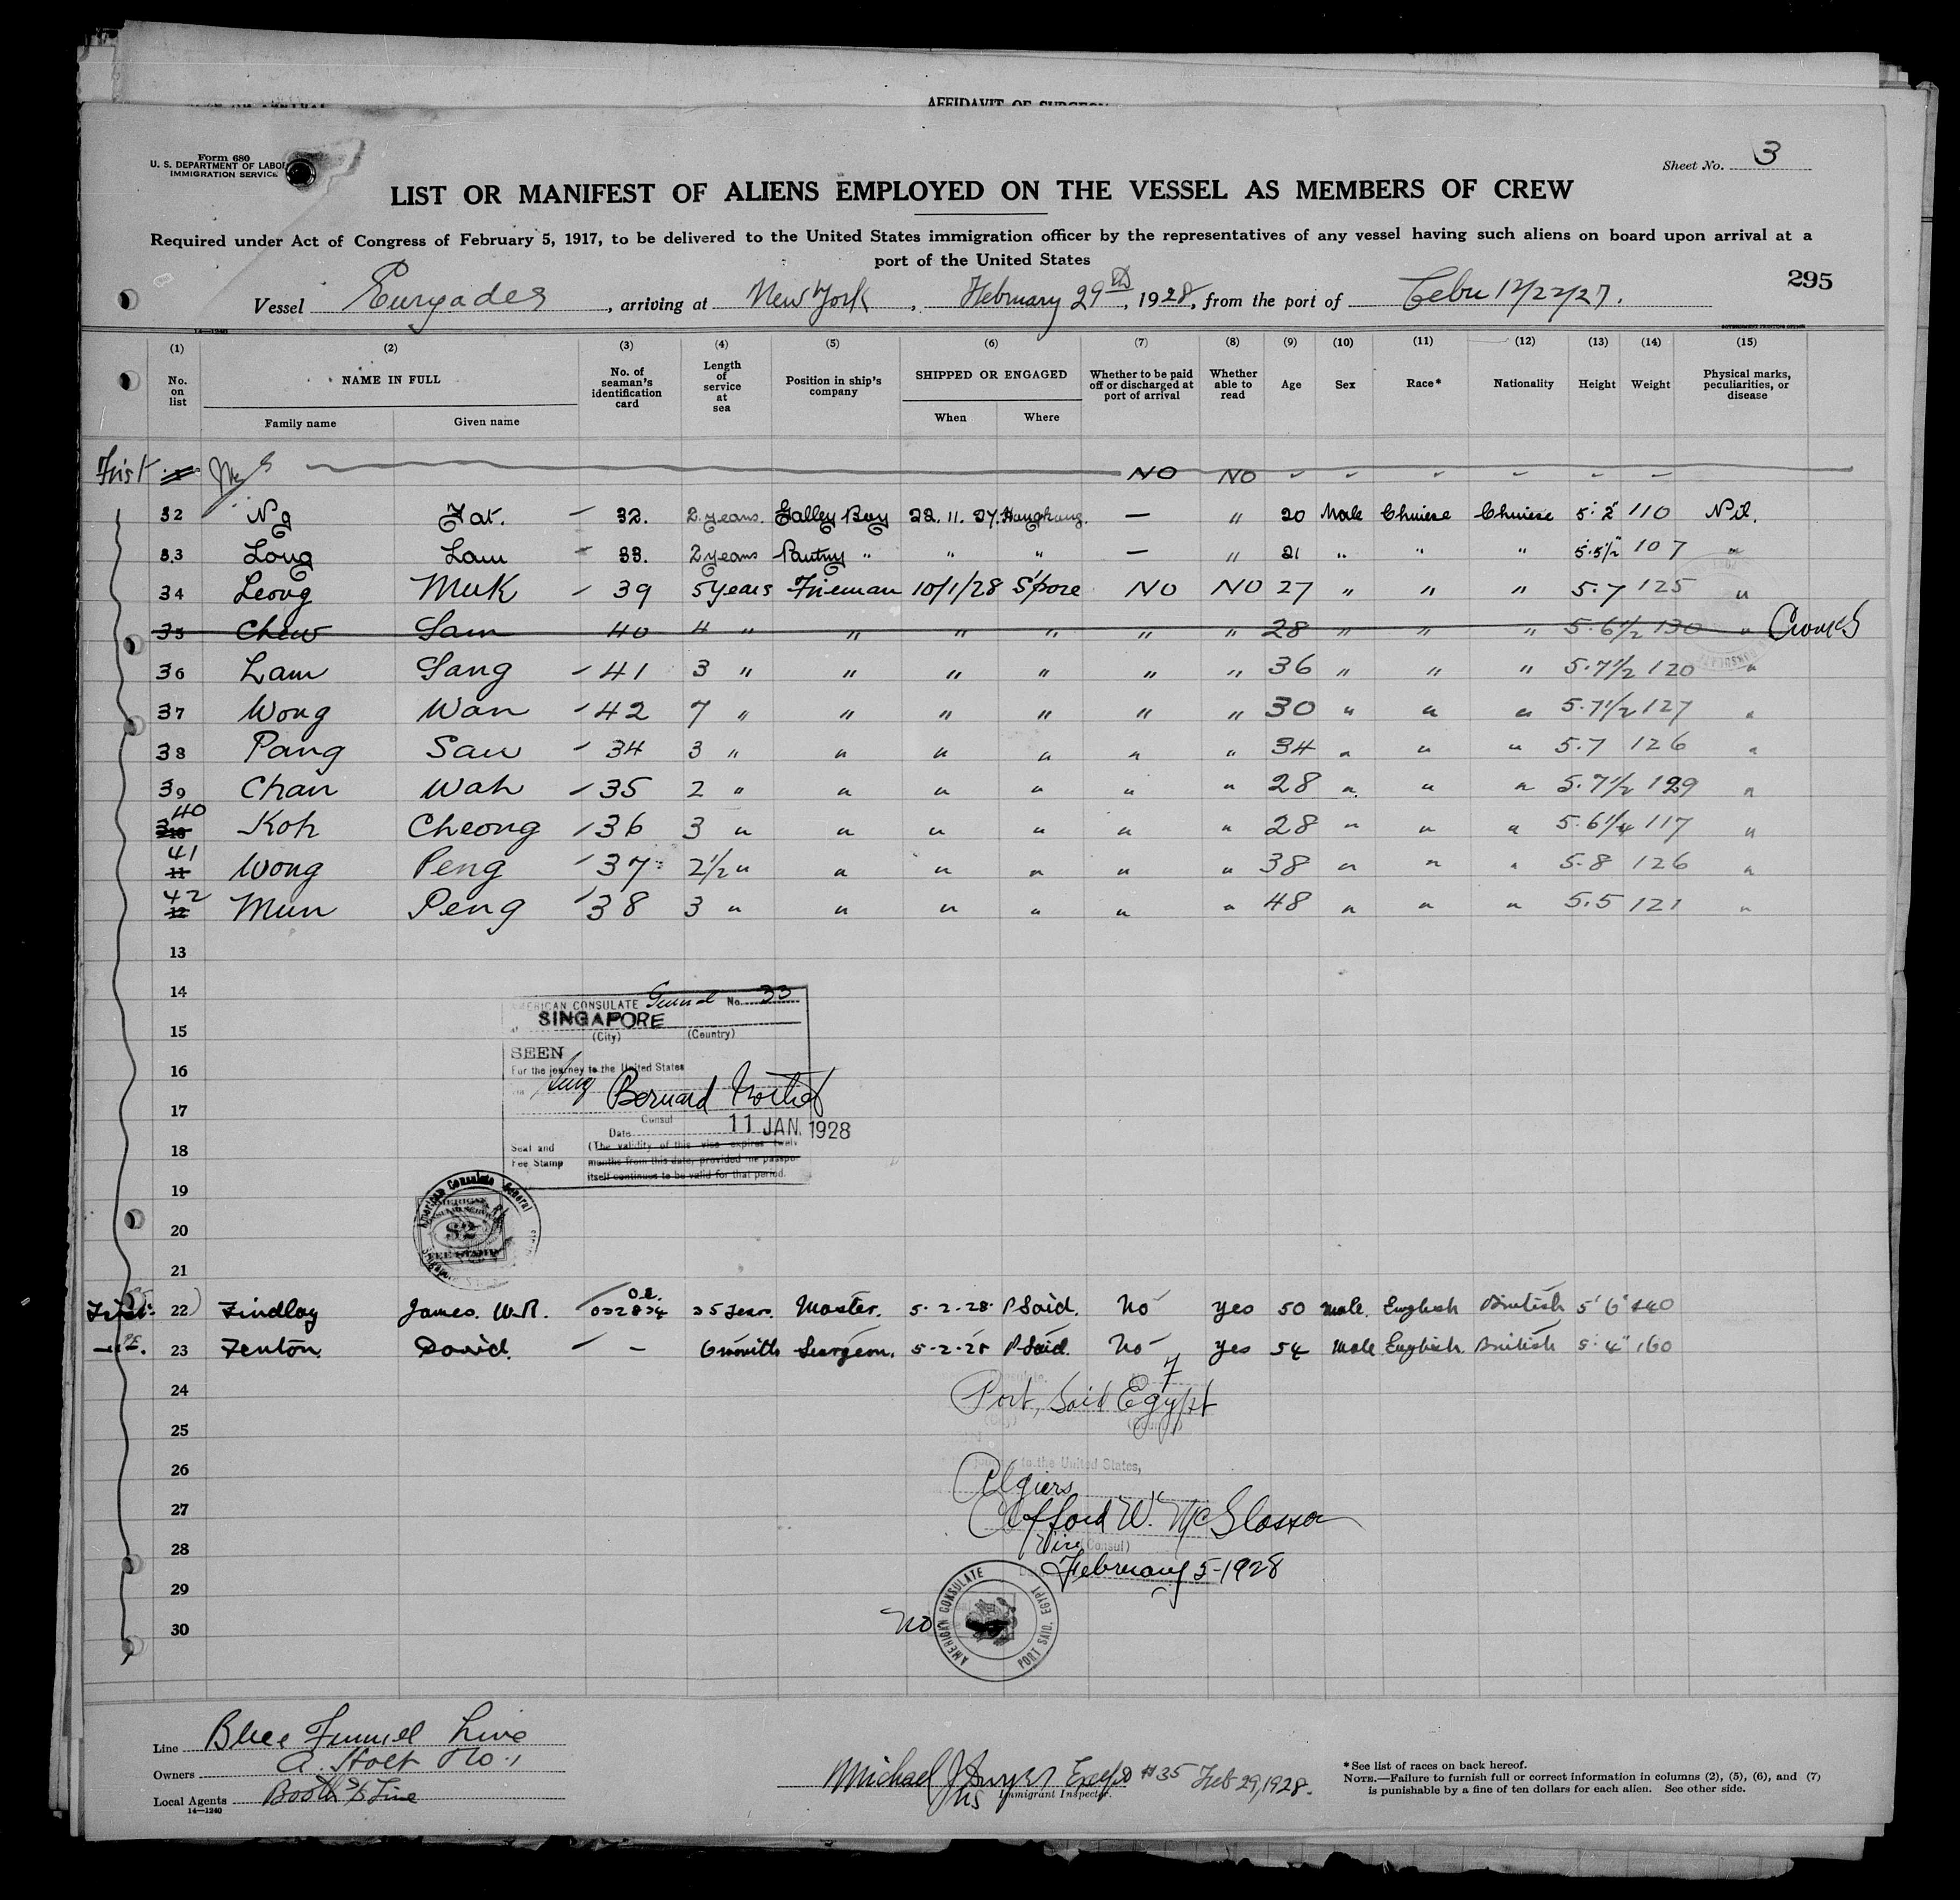 AFFIDAVIT OF SURGEON
Form 680
U. S. DEPARTMENT OF LABOR
IMMIGRATION SERVICE
Sheet No. 3
LIST OR MANIFEST OF ALIENS EMPLOYED ON THE VESSEL AS MEMBERS OF CREW
Required under Act of Congress of February 5, 1917, to be delivered to the United States immigration officer by the representatives of any vessel having such aliens on board upon arrival at a
port of the United States
295
Vessel Euryades, arriving at New York, February 29th, 1928, from the port of Cebu 12/22/27.
14—1240 GOVERNMENT PRINTING OFFICE
(1) (2) (3) (4) (5) (6) (7) (8) (9) (10) (11) (12) (13) (14) (15)
No. on list NAME IN FULL No. of seaman's identification card Length of service at sea Position in ship's company SHIPPED OR ENGAGED Whether to be paid off or discharged at port of arrival Whether able to read Age Sex Race* Nationality Height Weight Physical marks, peculiarities, or disease
Family name Given name When Where
First NO NO " " " " " "
32 Ng Fat. — 32. 2 years. Galley Boy 22. 11. 27. Hongkong. — " 20 Male Chinese Chinese 5' 2" 110 Nil.
33 Long Lam - 33. 2 years Pantry " " " — " 21 " " " 5.5½" 107 "
34 Leong Muk - 39 5 years Fireman 10/1/28 S'pore NO NO 27 " " " 5.7 125 "
35 Chew Sam 40 4 " " " " " " 28 " " " 5.6½ 130 "
36 Lam Sang - 41 3 " " " " " " 36 " " " 5.7½ 120 "
37 Wong Wan - 42 7 " " " " " " 30 " " " 5.7½ 127 "
38 Pang Sau - 34 3 " " " " " " 34 " " " 5.7 126 "
39 Chan Wah - 35 2 " " " " " " 28 " " " 5.7½ 129 "
40 Koh Cheong / 36 3 " " " " " " 28 " " " 5.6¼ 117 "
41 11 Wong Peng / 37 2½ " " " " " " 38 " " " 5.8 126 "
42 12 Mun Peng / 38 3 " " " " " " 48 " " " 5.5 121 "
13
14
AMERICAN CONSULATE General No. 33
SINGAPORE
15
(City) (Country)
SEEN
16
For the journey to the United States
Bernard
17
Consul
Date 11 JAN. 1928
18
Seal and Fee Stamp
(The validity of this visa expires twelve
months from this date, provided the passport
itself continues to be valid for that period.
19
American Consulate General
AMERICAN
$2
FEE STAMP
20
21
22 Findlay James. W.R. 25 years Master. 5.2.28. P Said. No Yes 50 Male. English British 5' 6"
23 Fenton. David. — - 6 months Surgeon. 5-2-28 P Said. No Yes 54 Male English British 5' 4" 160
7
24
Port Said Egypt
(City)
25
26
journey to the United States,
Algiers
27
Clifford W.
28
Vice (Consul)
February 5-1928
29
AMERICAN CONSULATE
PORT SAID, EGYPT
No
30
Line Blue Funnel Line
Owners A. Holt
Local Agents Booth S/S Line
14—1240
Michael J Dwyer #35 Feb 29, 1928.
Ins
Immigrant Inspector.
*See list of races on back hereof.
NOTE.—Failure to furnish full or correct information in columns (2), (5), (6), and (7)
is punishable by a fine of ten dollars for each alien. See other side.